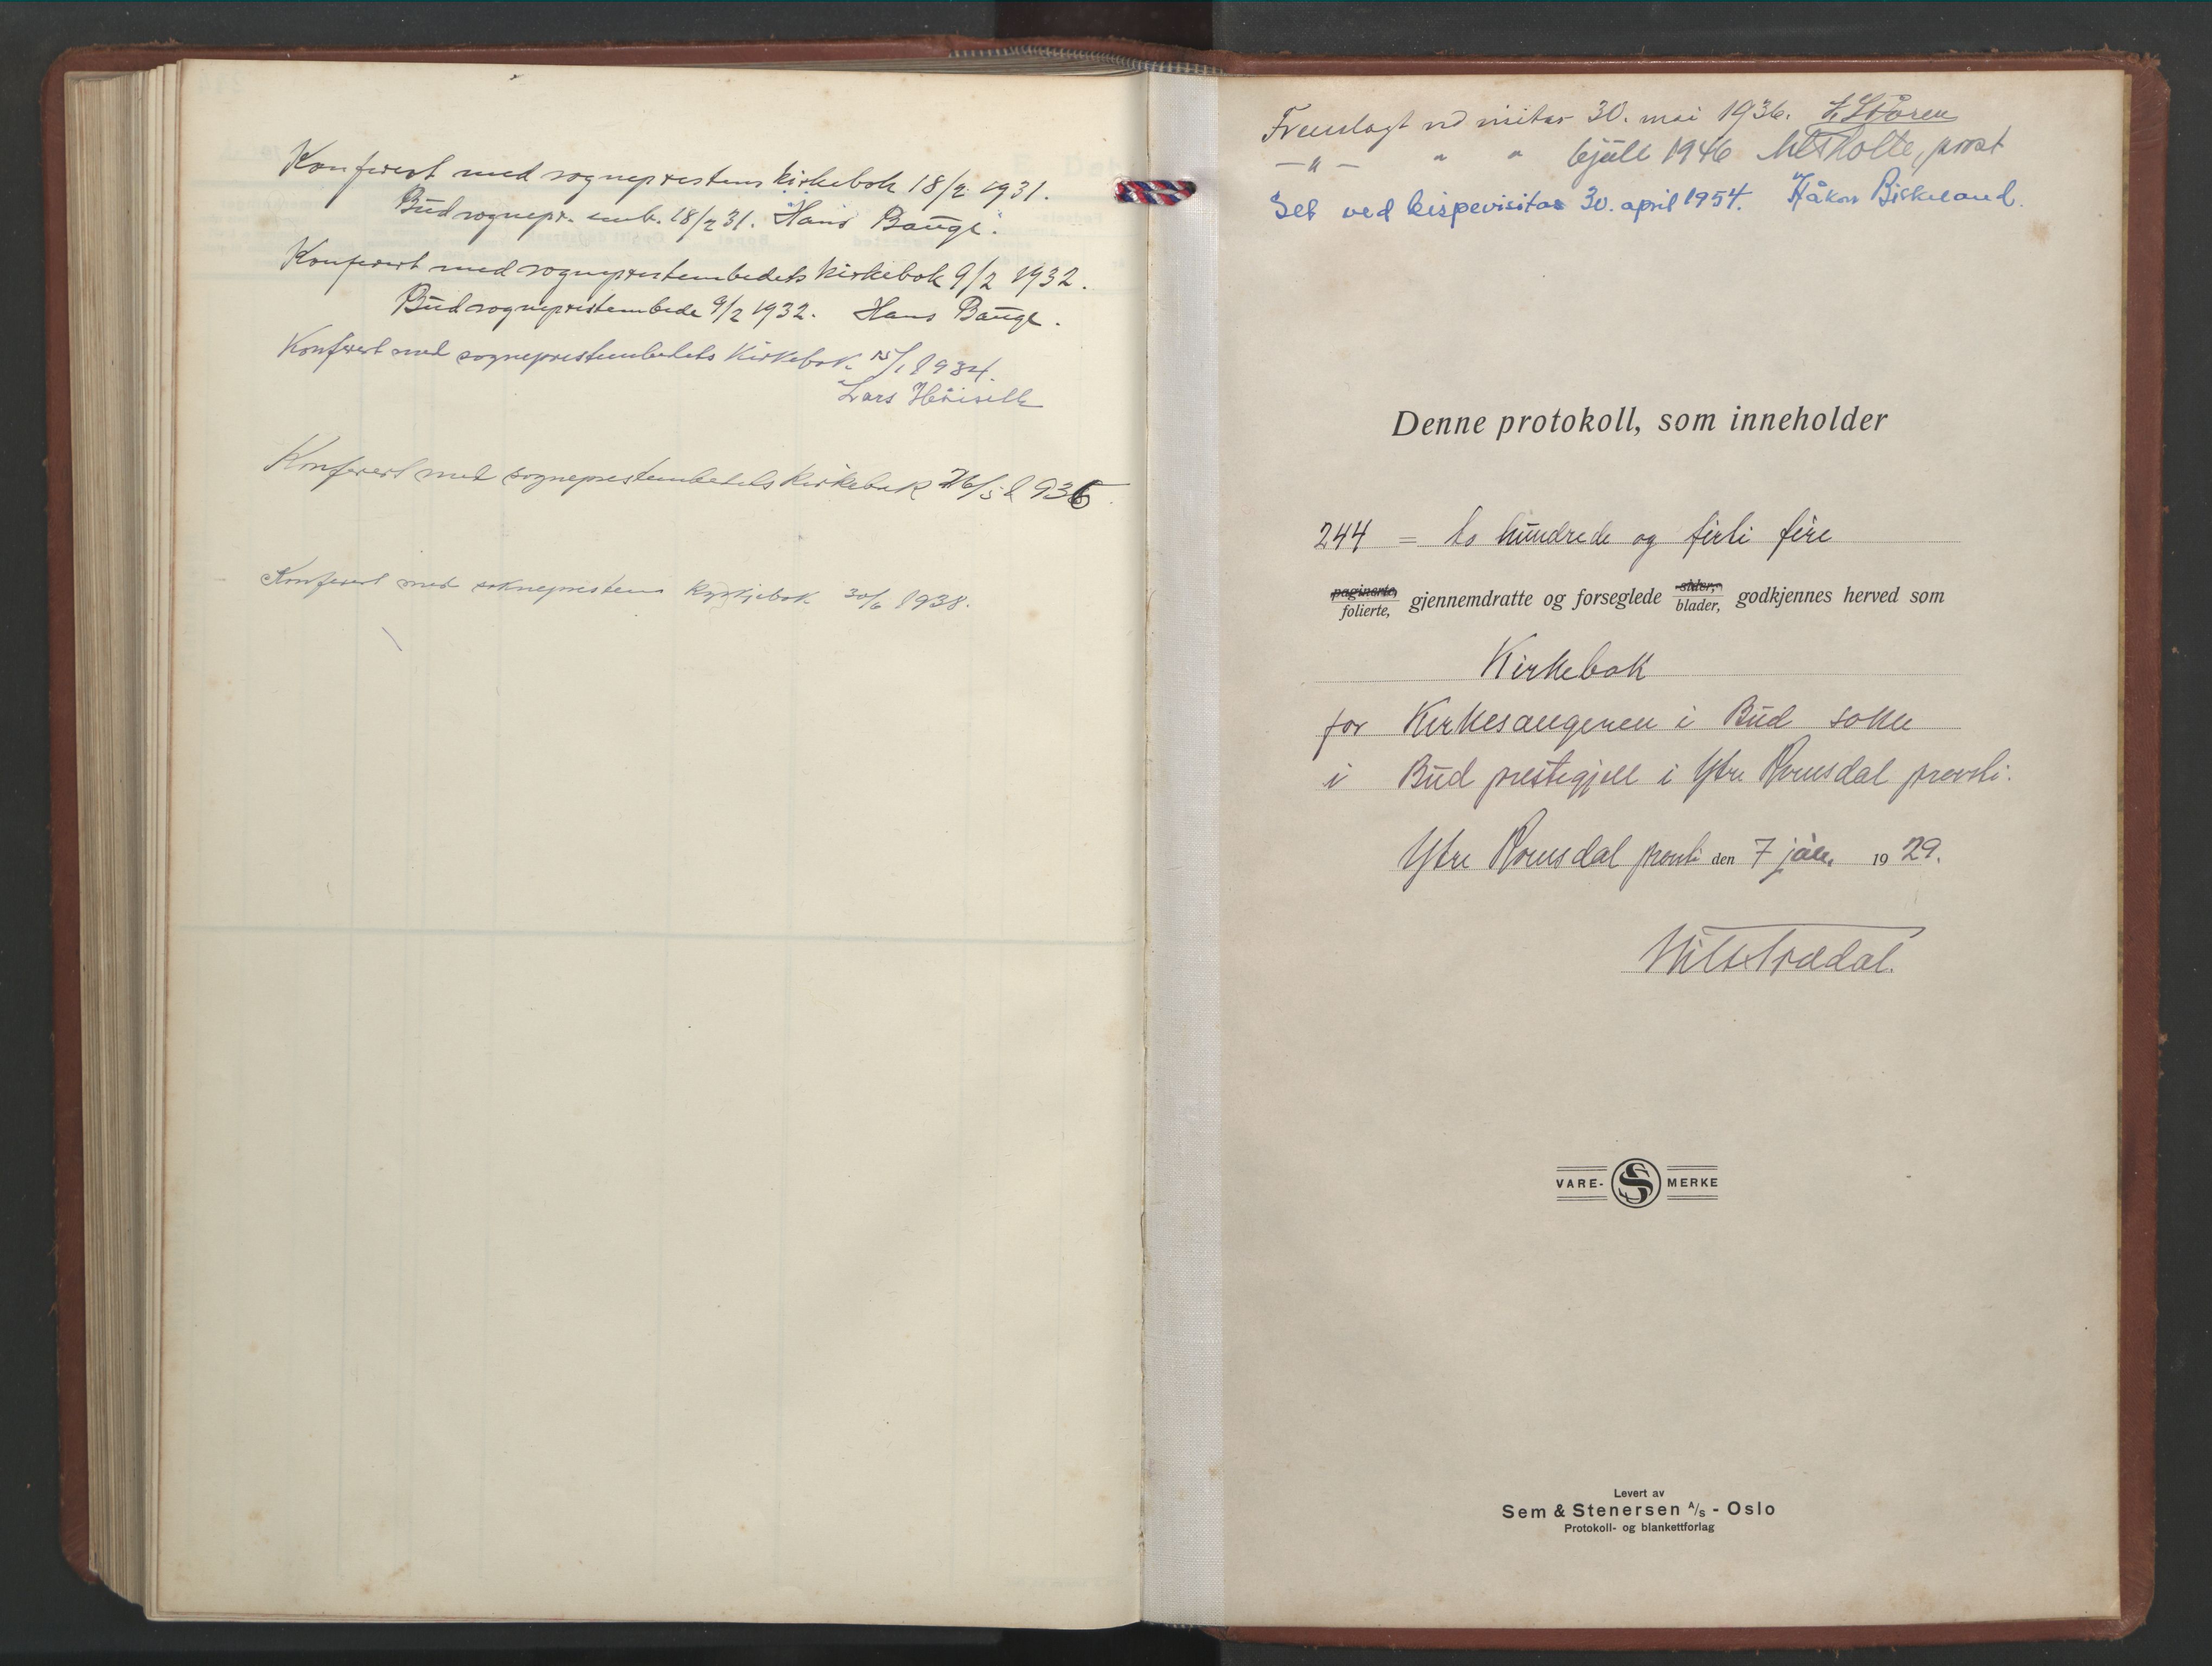 Konferert med sogneprestens kirkebok 18/2 1931.
Bud sognepr. emb. 18/2 31. Hans Bauge.
Konferert med sogneprestembedets kirkebok 9/2 1932.
Bud sogneprestembede 9/2 1932. Hans Bauge.
Konferert med sogneprestembedets Kirkebok 15/1 1934.
Lars
Konferert med sogneprestembedets Kirkebok 26/5 1936.
Konferert med sokneprestens kyrkjebok 30/6 1938.
Fremlagt ved visitas 30. mai 1936. H. Støren
—"— " " 6 juli 1946 Holte, prost
Set ved bispevisitas 30. april 1954. Håkon Birkeland.
Denne protokoll, som inneholder
244 = to hundrede og firti fire
paginerte, sider,
folierte, gjennemdratte og forseglede blader, godkjennes herved som
Kirkebok
for Kirkesangeren i Bud sokn
i Bud prestegjell i Ytre Romsdal prosti.
Ytre Romsdal prosti den 7 jan. 1929.
VARE- S MERKE
Levert av
Sem & Stenersen A/S - Oslo
Protokoll- og blankettforlag